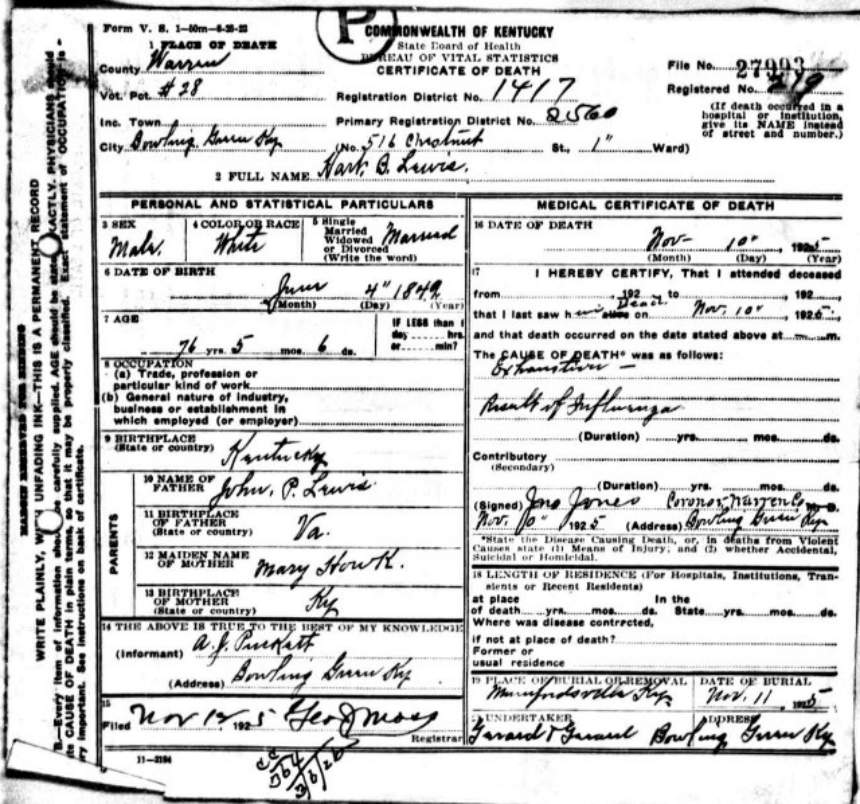 Form V. S. 1-50m-6-26-22
P
COMMONWEALTH OF KENTUCKY
State Board of Health
BUREAU OF VITAL STATISTICS
CERTIFICATE OF DEATH
1 PLACE OF DEATH
County Warren
Vot. Pct. #28
Inc. Town
City Bowling Green Ky
Registration District No. 1417
Primary Registration District No. 2560
(No. 516 Chestnut St., 1" Ward)
File No. 27993
Registered No. 219
(If death occurred in a
hospital or institution,
give its NAME instead
of street and number.)
2 FULL NAME B. Lewis.
PERSONAL AND STATISTICAL PARTICULARS
3 SEX
Male.
4 COLOR OR RACE
White
5 Single
Married
Widowed
or Divorced
(Write the word)
Married
6 DATE OF BIRTH
June 4" 1849
(Month) (Day) (Year)
7 AGE
76 yrs. 5 mos. 6 ds.
IF LESS than 1
day hrs.
or min?
8 OCCUPATION
(a) Trade, profession or
particular kind of work
(b) General nature of industry,
business or establishment in
which employed (or employer)
9 BIRTHPLACE
(State or country)
Kentucky
PARENTS
10 NAME OF
FATHER
John. P. Lewis.
11 BIRTHPLACE
OF FATHER
(State or country)
Va.
12 MAIDEN NAME
OF MOTHER
Mary Howk.
13 BIRTHPLACE
OF MOTHER
(State or country)
Ky
14 THE ABOVE IS TRUE TO THE BEST OF MY KNOWLEDGE
(Informant) A. J. Puckett
(Address) Bowling Green Ky
15
Filed Nov 12 1925 Geo J Moss
Registrar
11-2184
MEDICAL CERTIFICATE OF DEATH
16 DATE OF DEATH
Nov- 10" 1925
(Month) (Day) (Year)
17 I HEREBY CERTIFY, That I attended deceased
from 192 to 192
that I last saw him Dead alive on Nov. 10" 1925.
and that death occurred on the date stated above at m.
The CAUSE OF DEATH* was as follows:
Exhaustion -
Result of Influenza
(Duration) yrs. mos. ds.
Contributory
(Secondary)
(Duration) yrs. mos. ds.
(Signed) Jno Jones Coroner Warren Co M. D.
Nov. 10" 1925 (Address) Bowling Green Ky
*State the Disease Causing Death, or, in deaths from Violent
Causes state (1) Means of Injury; and (2) whether Accidental,
Suicidal or Homicidal.
18 LENGTH OF RESIDENCE (For Hospitals, Institutions, Tran-
sients or Recent Residents)
at place In the
of death yrs. mos. ds. State yrs. mos. ds.
Where was disease contrected,
if not at place of death?
Former or
usual residence
19 PLACE OF BURIAL OR REMOVAL
Munfordsville Ky.
DATE OF BURIAL
Nov. 11 1925
20 UNDERTAKER
Gerard & Gerard
ADDRESS
Bowling Green Ky
MARGIN RESERVED FOR BINDING
WRITE PLAINLY, WITH UNFADING INK—THIS IS A PERMANENT RECORD
B.—Every item of information should be carefully supplied. AGE should be stated EXACTLY. PHYSICIANS should
state CAUSE OF DEATH in plain terms, so that it may be properly classified. Exact statement of OCCUPATION is
very important. See instructions on back of certificate.